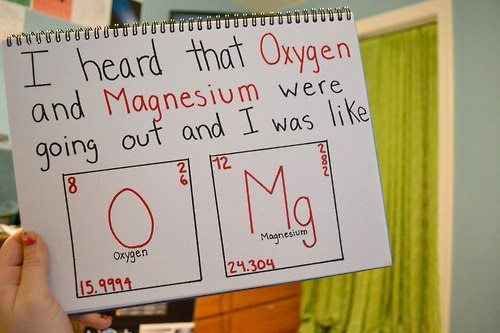 I heard that Oxygen
and Magnesium were
going out and I was like
8 2
6
O
Oxygen
15.9994
12 2
8
2
Mg
Magnesium
24.304